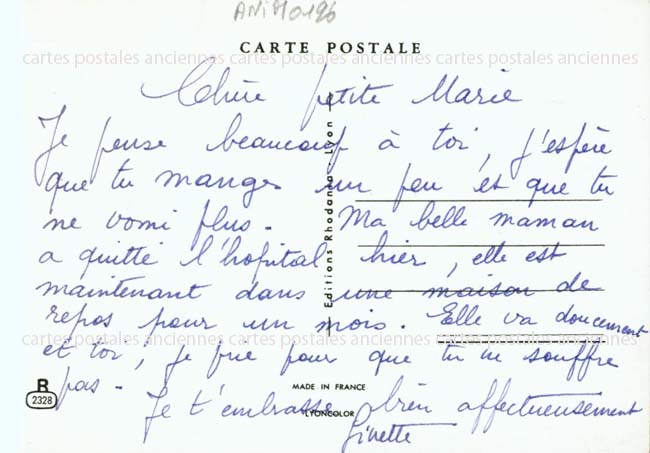 ANIM0196
CARTE POSTALE
cartes postales anciennes cartes postales anciennes cartes postales anciennes
Chère petite Marie
Je pense beaucoup à toi, j'espère
que tu manges un peu et que tu
ne vomi plus. Ma belle maman
a quitté l'hopital hier, elle est
maintenant dans une maison de
repos pour un mois. Elle va doucement
cartes postales anciennes cartes postales anciennes cartes postales anciennes
et toi, je prie pour que tu ne souffre
pas.
Je t'embrasse bien affectueusement
Ginette
Editions Rhodania - Lyon
R
2328
MADE IN FRANCE
LYONCOLOR